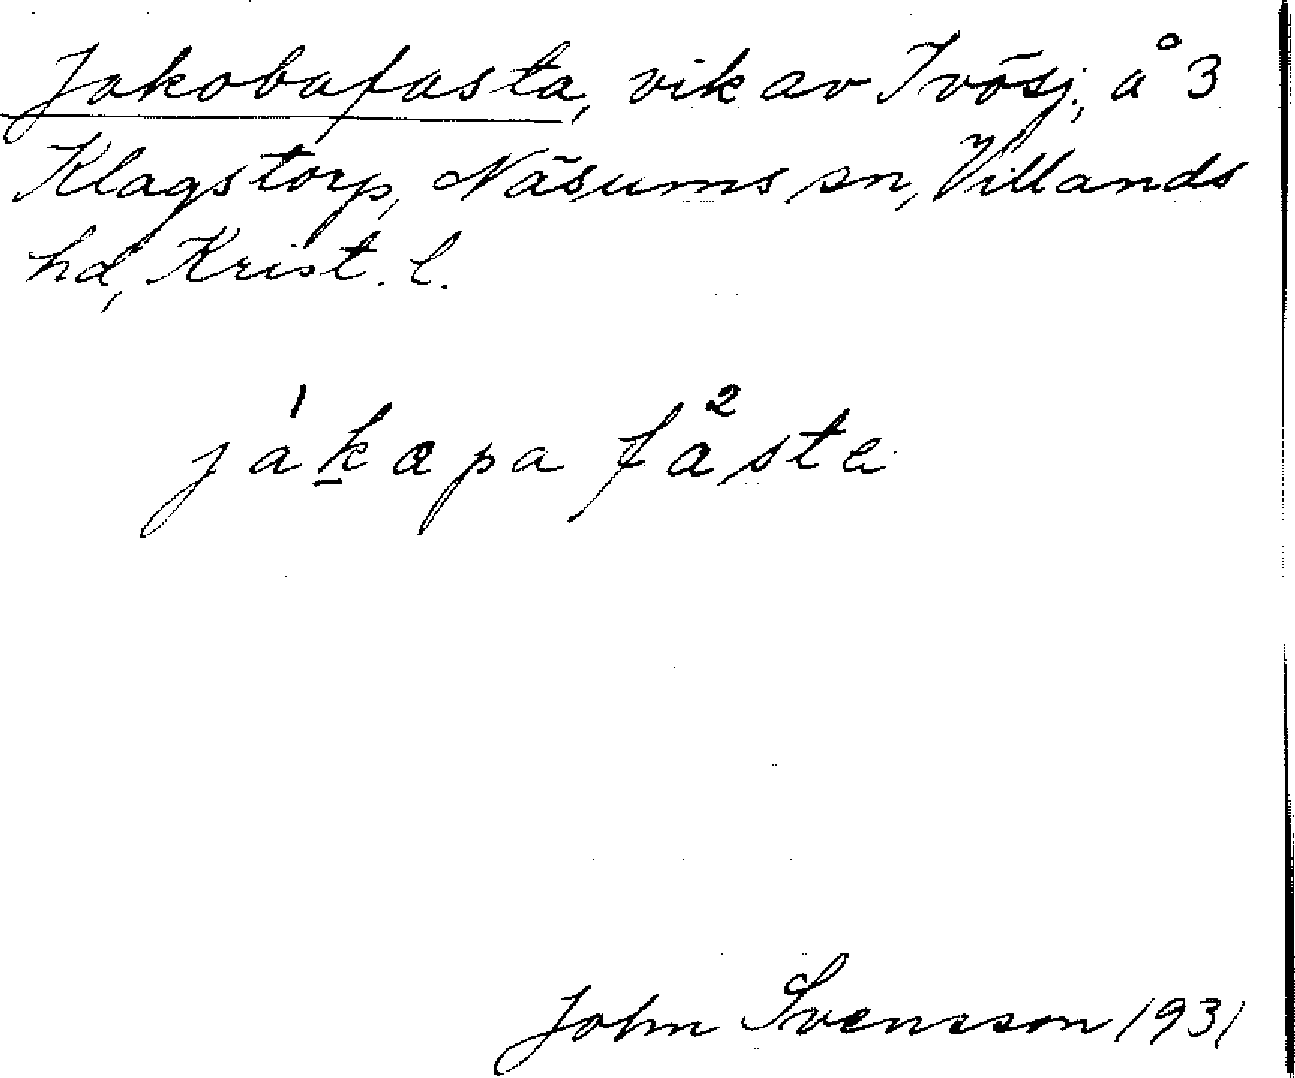 Jakobafasta, vik av Ivösj., å 3
Klagstorp, Näsums sn, Villands
hd, Krist. l.
já¹kapa få²sta
John Svensson 1931